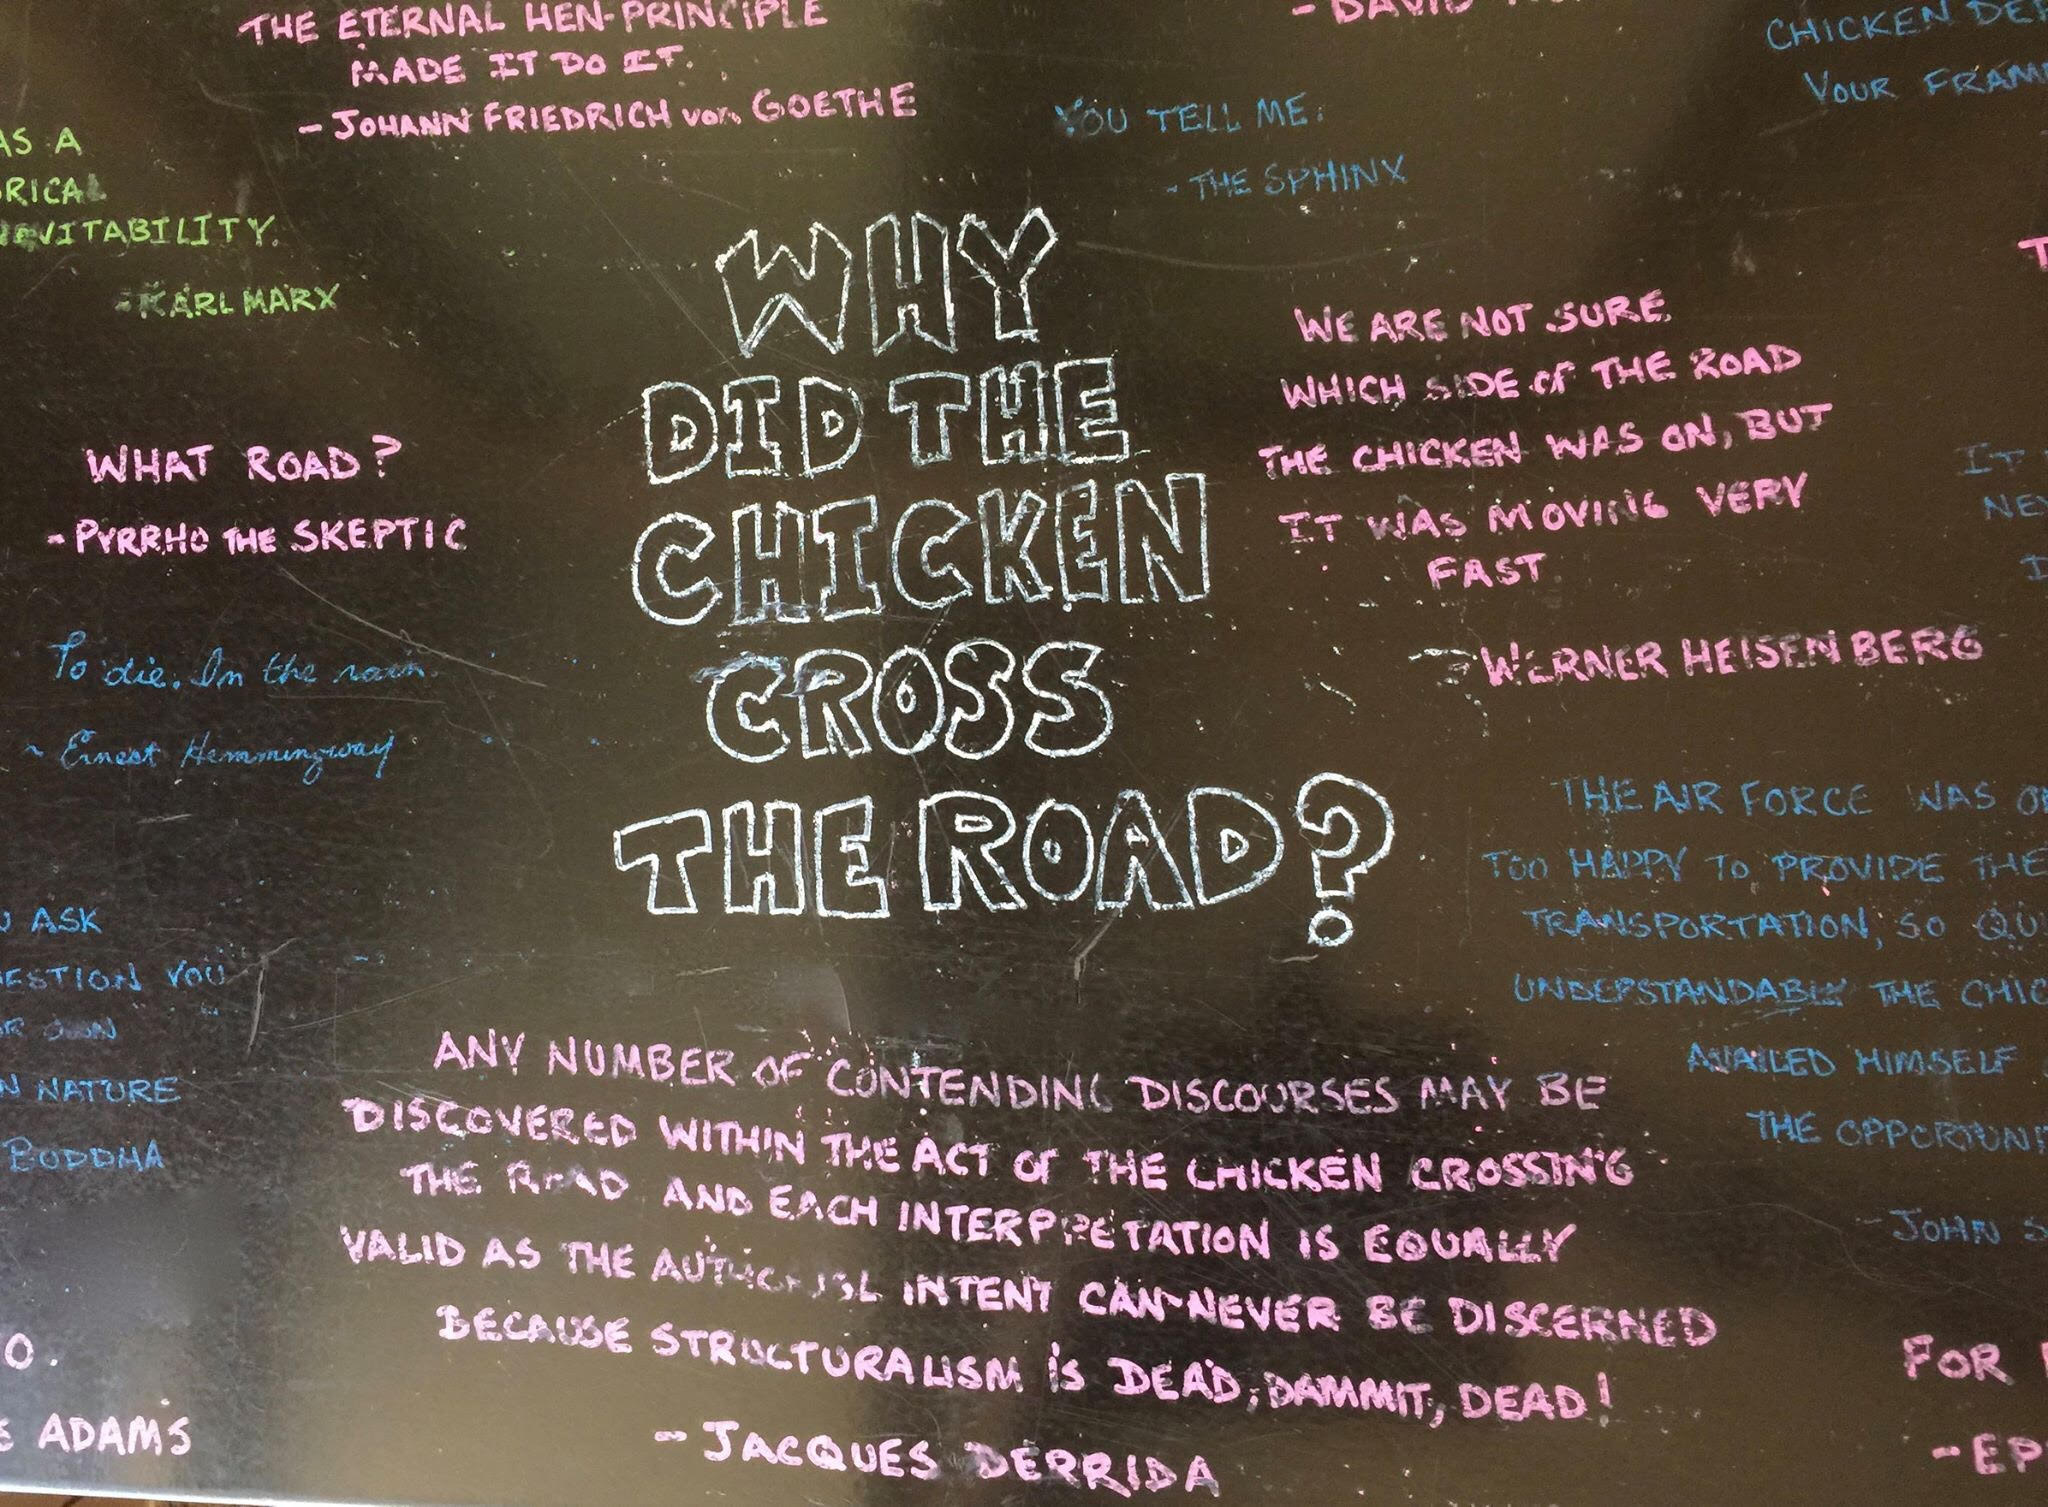 THE ETERNAL HEN-PRINCIPLE
MADE IT DO IT.
- JOHANN FRIEDRICH von GOETHE
- DAVID
CHICKEN
YOUR
YOU TELL ME.
- THE SPHINX
AS A
RICAL
EVITABILITY.
- KARL MARX
WHAT ROAD?
- PYRRHO THE SKEPTIC
To die. In the rain.
~ Ernest Hemmingway
WHY
DID THE
CHICKEN
CROSS
THE ROAD?
WE ARE NOT SURE
WHICH SIDE OF THE ROAD
THE CHICKEN WAS ON, BUT
IT WAS MOVING VERY
FAST.
- WERNER HEISENBERG
IT
THE AIR FORCE WAS
TOO HAPPY TO PROVIDE THE
TRANSPORTATION, SO
UNDERSTANDABLY THE
AVAILED HIMSELF
THE
- JOHN
ASK
ESTION YOU
OWN
NATURE
BUDDHA
ANY NUMBER OF CONTENDING DISCOURSES MAY BE
DISCOVERED WITHIN THE ACT OF THE CHICKEN CROSSING
THE ROAD AND EACH INTERPRETATION IS EQUALLY
VALID AS THE AUTHORIAL INTENT CAN NEVER BE DISCERNED
BECAUSE STRUCTURALISM IS DEAD, DAMMIT, DEAD!
- JACQUES DERRIDA
O.
ADAMS
FOR
- EP